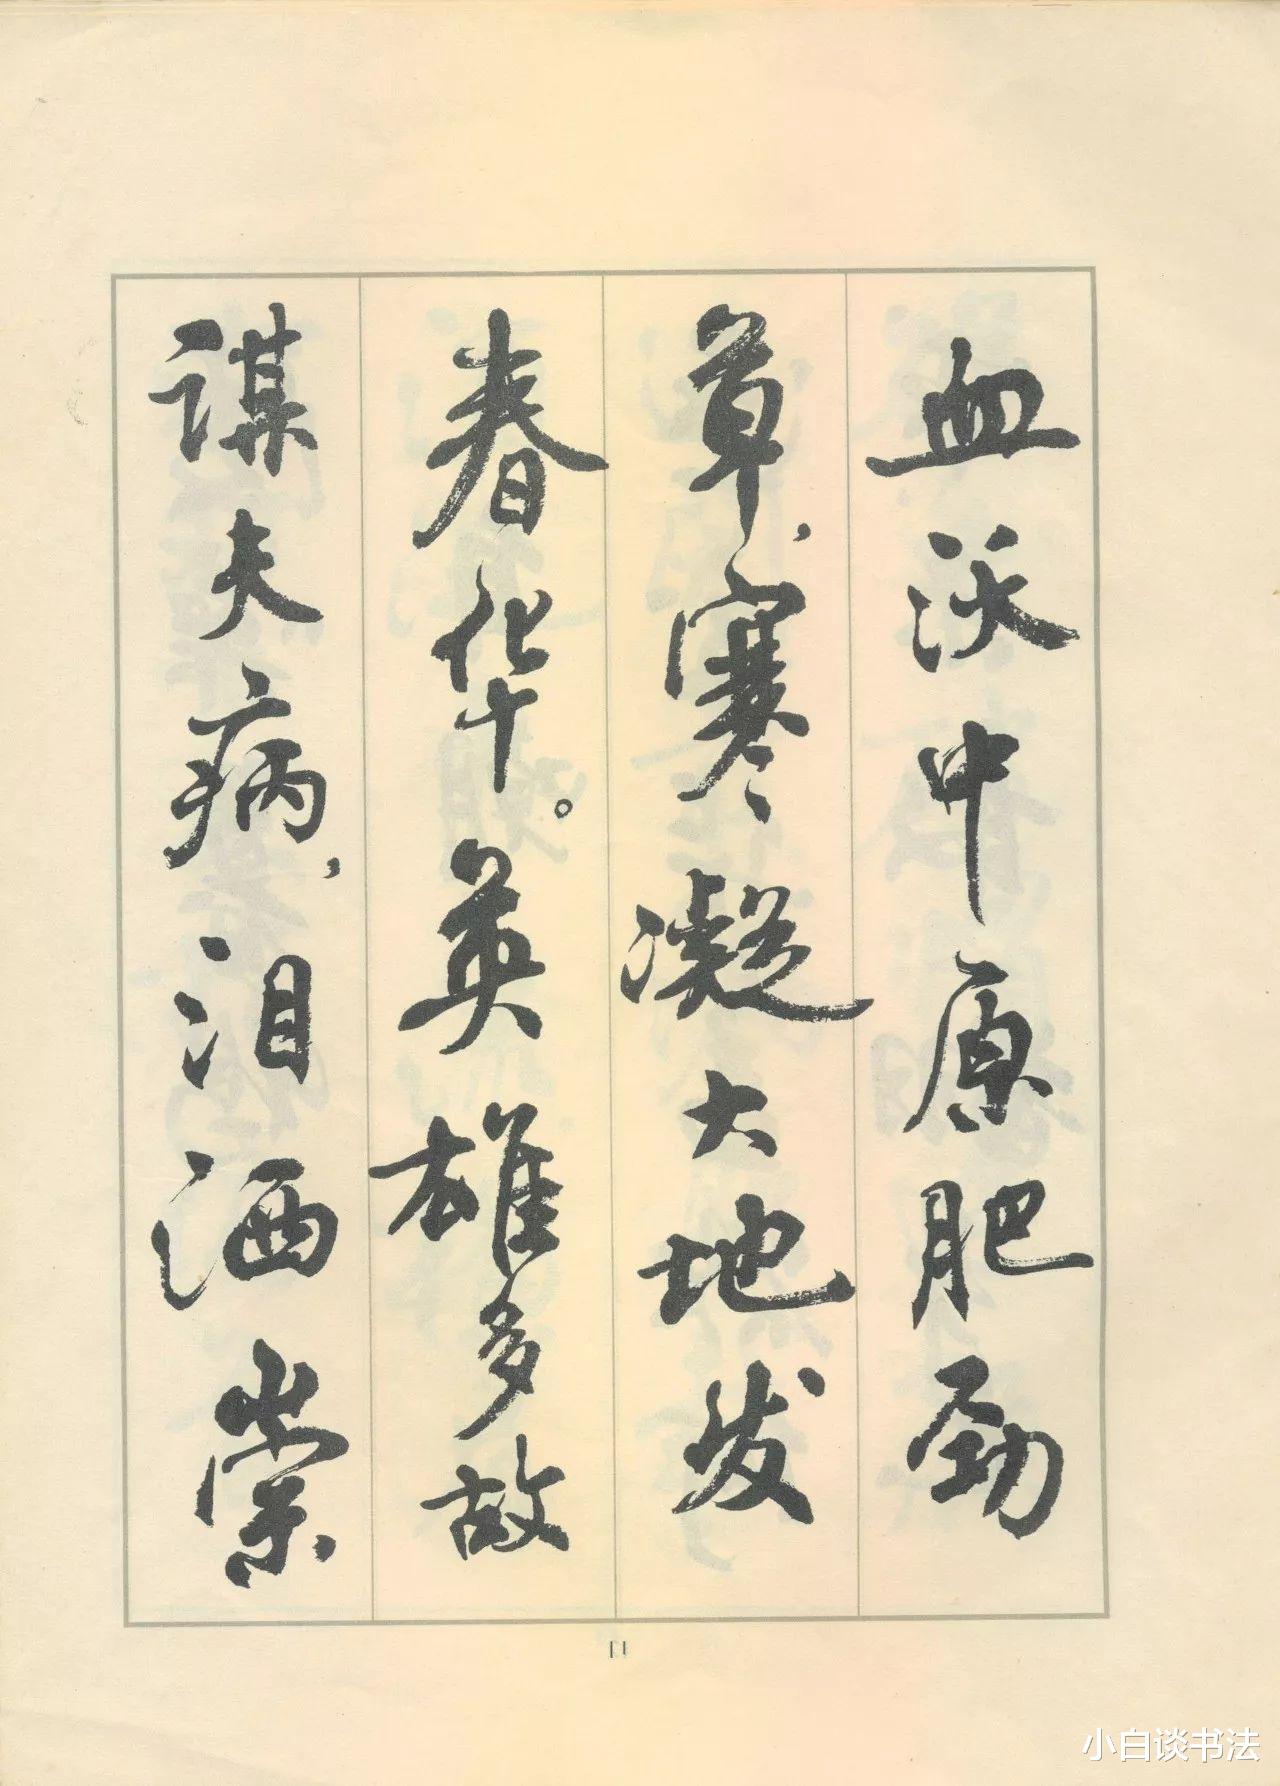 血沃中原肥劲
草,寒凝大地发
春华。英雄多故
谋夫病,泪洒崇
11
小白谈书法